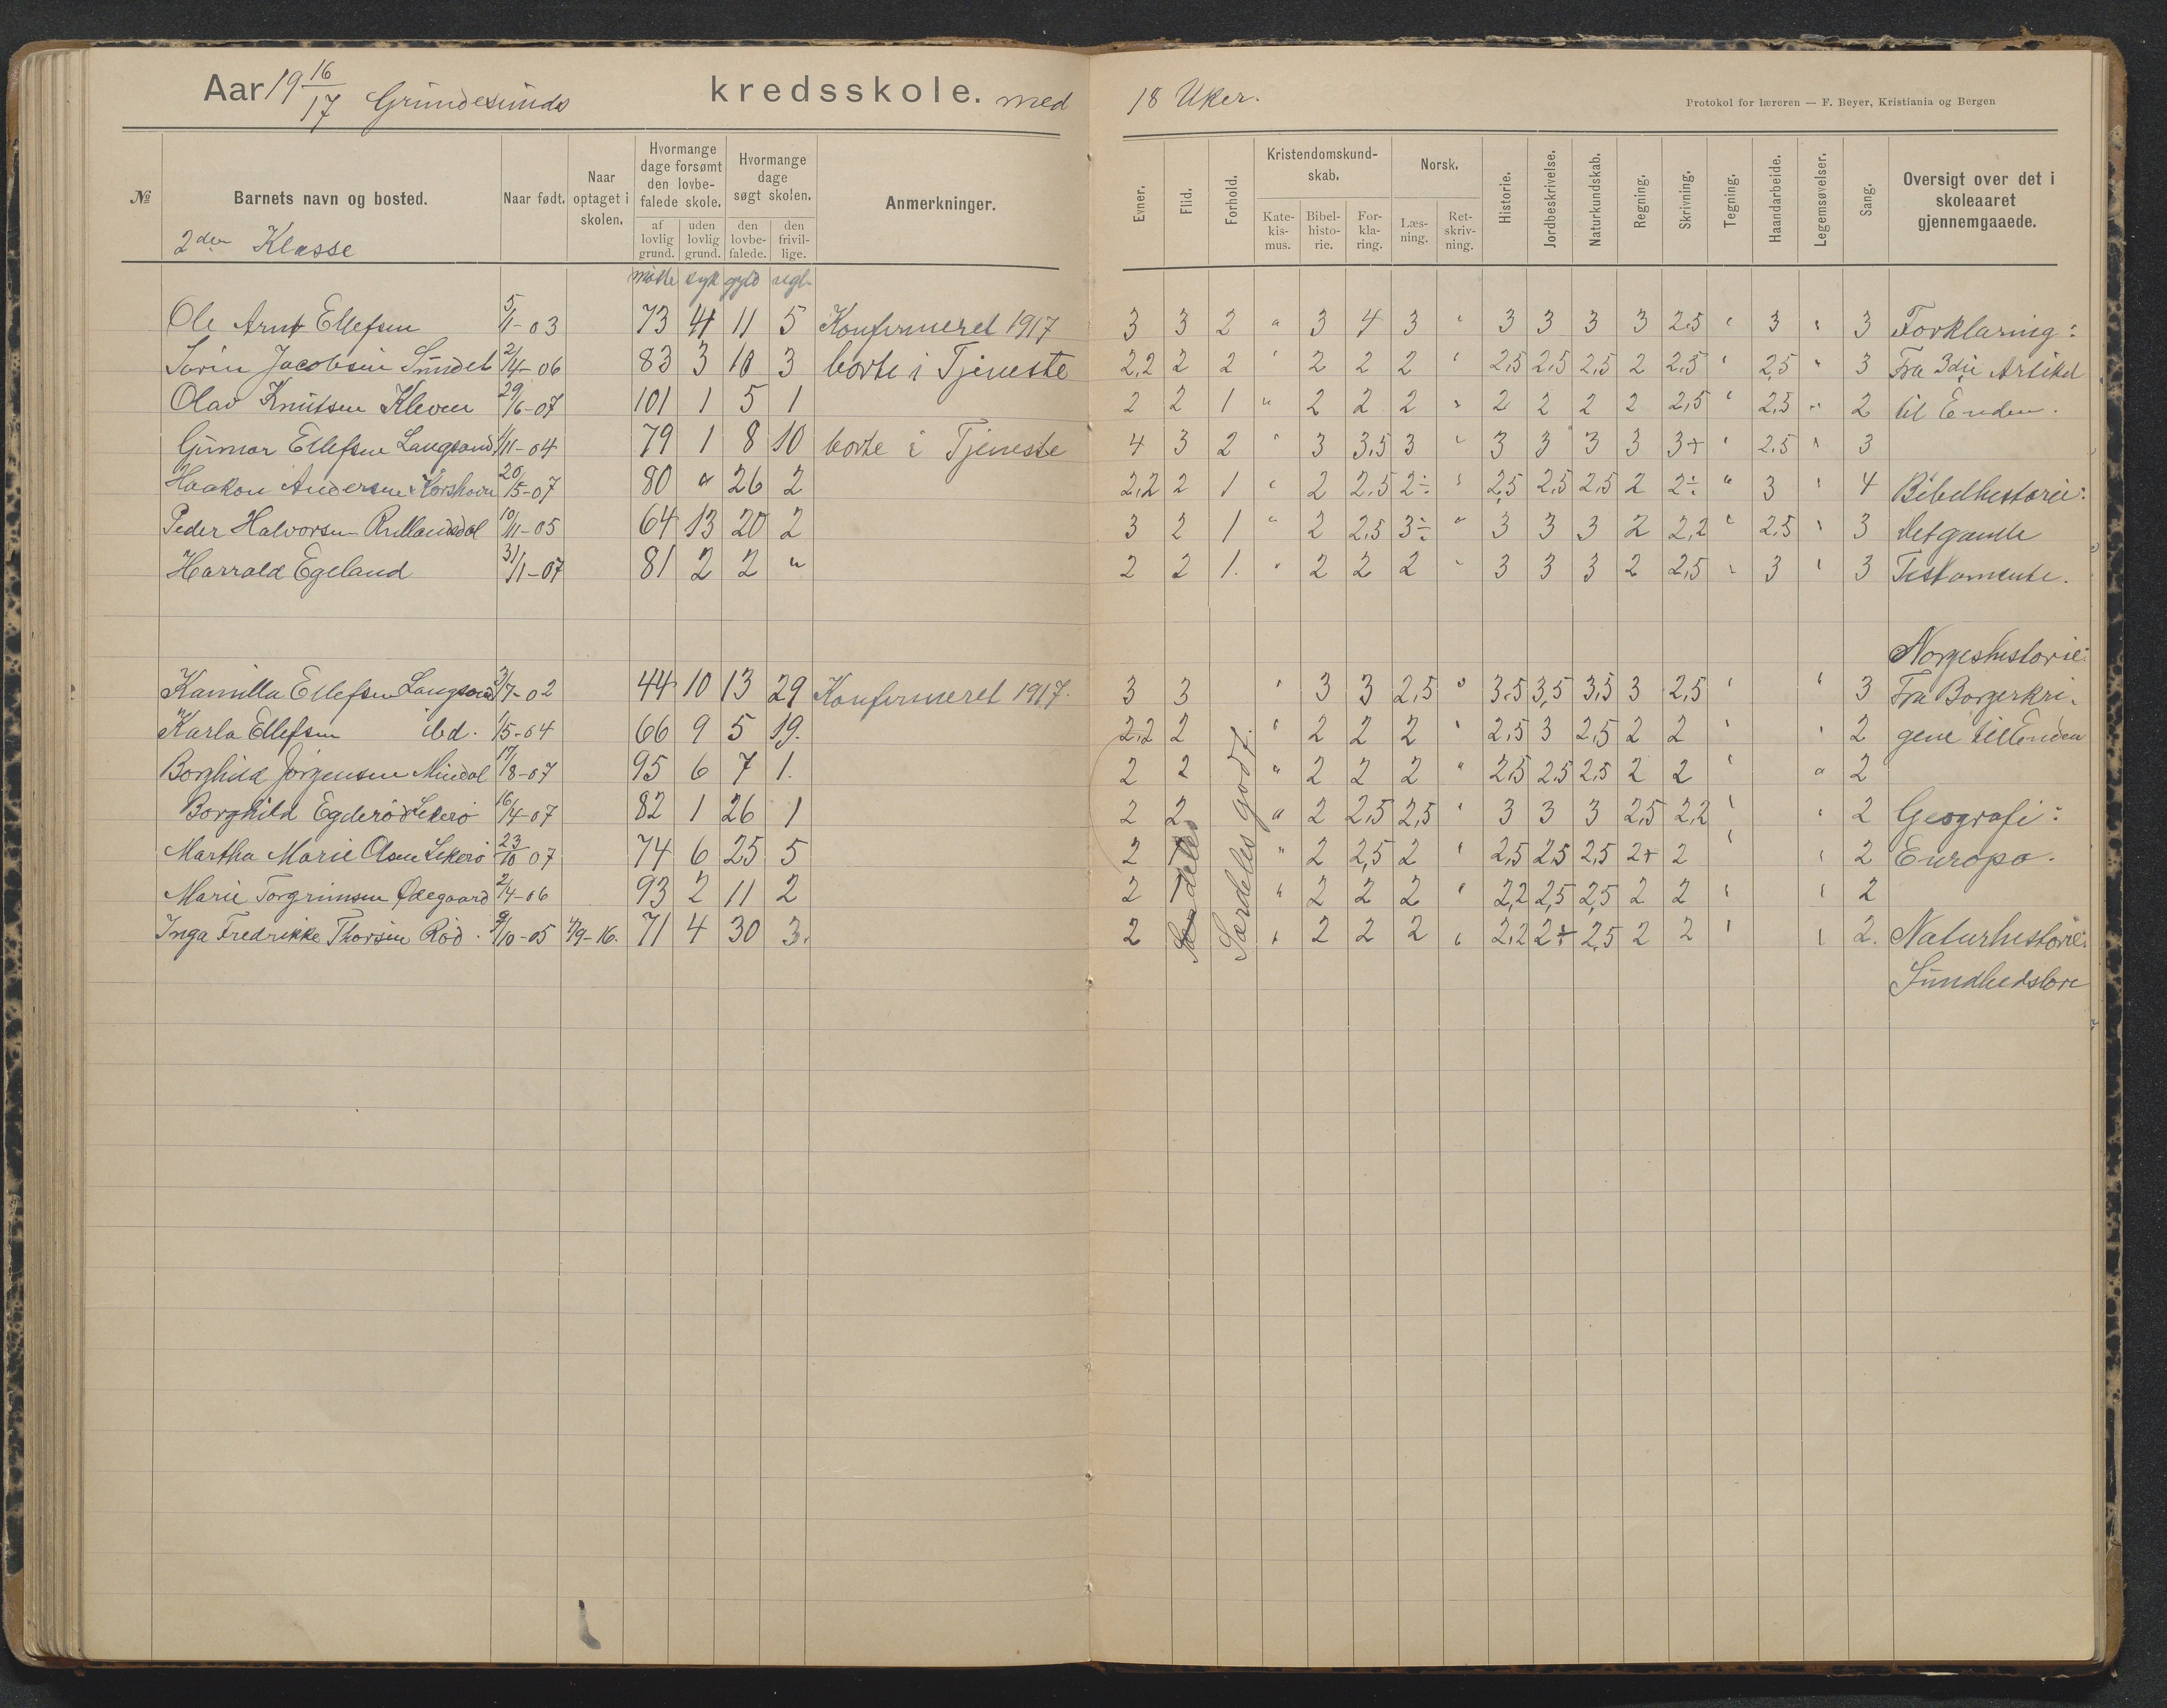 Aar 19 16/17 Grundesunds kredsskole. med 18 Uker.
Protokol for læreren — F. Beyer, Kristiania og Bergen
№ Barnets navn og bosted. Naar født. Naar optaget i skolen. Hvormange dage forsømt den lovbefalede skole. af lovlig grund. uden lovlig grund. Hvormange dage søgt skolen. den lovbefalede. den frivillige. Anmerkninger. Evner. Flid. Forhold. Kristendomskundskab. Katekismus. Bibelhistorie. Forklaring. Norsk. Læsning. Retskrivning. Historie. Jordbeskrivelse. Naturkundskab. Regning. Skrivning. Tegning. Haandarbeide. Legemsøvelser. Sang. Oversigt over det i skoleaaret gjennemgaaede.
2den Klasse
møtte syk gyld ugl.
Ole Arnt Ellefsen 5/1-03 73 4 11 5 Konfirmeret 1917 3 3 2 " 3 4 3 " 3 3 3 3 2,5 " 3 " 3 Forklaring:
Sørin Jacobsen Sundet 2/4-06 83 3 10 3 borte i Tjeneste 2,2 2 2 " 2 2 2 " 2,5 2,5 2,5 2 2,5 " 2,5 " 3 Fra 3die Artikel
Olav Knutsen Kleven 29/6-07 101 1 5 1 2 2 1 " 2 2 2 " 2 2 2 2 2,5 " 2,5 " 2 til Enden.
Gunnar Ellefsen Langsand 1/11-04 79 1 8 10 borte i Tjeneste 4 3 2 " 3 3,5 3 " 3 3 3 3 3+ " 2,5 " 3
Haakon Andersen Korshavn 20/5-07 80 " 26 2 2,2 2 1 " 2 2,5 2÷ " 2,5 2,5 2,5 2 2÷ " 3 " 4 Bibelhistorie:
Peder Halvorsen 10/11-05 64 13 20 2 3 2 1 " 2 2,5 3÷ " 3 3 3 2 2,2 " 2,5 " 3 Det gamle
Harrald Egeland 31/1-07 81 2 2 " 2 2 1. " 2 2 2 " 3 3 3 2 2,5 " 3 " 3 Testamente.
Norgeshistorie:
Kamilla Ellefsen Langsand 3/7-02 44 10 13 29 Konfirmeret 1917. 3 3 " 3 3 2,5 " 3,5 3,5 3,5 3 2,5 " " 3 Fra Borgerkri-
Karla Ellefsen ibd. 1/5-04 66 9 5 19. 2,2 2 " 2 2 2 " 2,5 3 2,5 2 2 " " 2 gene til Enden
Borghild Jørgensen Mindal 17/8-07 95 6 7 1. 2 2 " 2 2 2 " 2,5 2,5 2,5 2 2 " " 2
Borghild Egderød Lekerø 16/4-07 82 1 26 1 2 2 " 2 2,5 2,5 " 3 3 3 2,5 2,2 " " 2 Geografi:
Martha Marie Olsen Lekerø 23/10 07 74 6 25 5 2 1 " 2 2,5 2 " 2,5 2,5 2,5 2+ 2 " " 2 Europa.
Marie Torgrimsen Ødegaard 2/4-06 93 2 11 2 2 1 " 2 2 2 " 2,2 2,5 2,5 2 2 " " 2
Inga Fredrikke Thorsen Rød. 9/10-05 4/9-16. 71 4 30 3. 2 " 2 2 2 " 2,2 2+ 2,5 2 2 " " 2. Naturhistorie:
Særdeles godt.
Sundhedslære